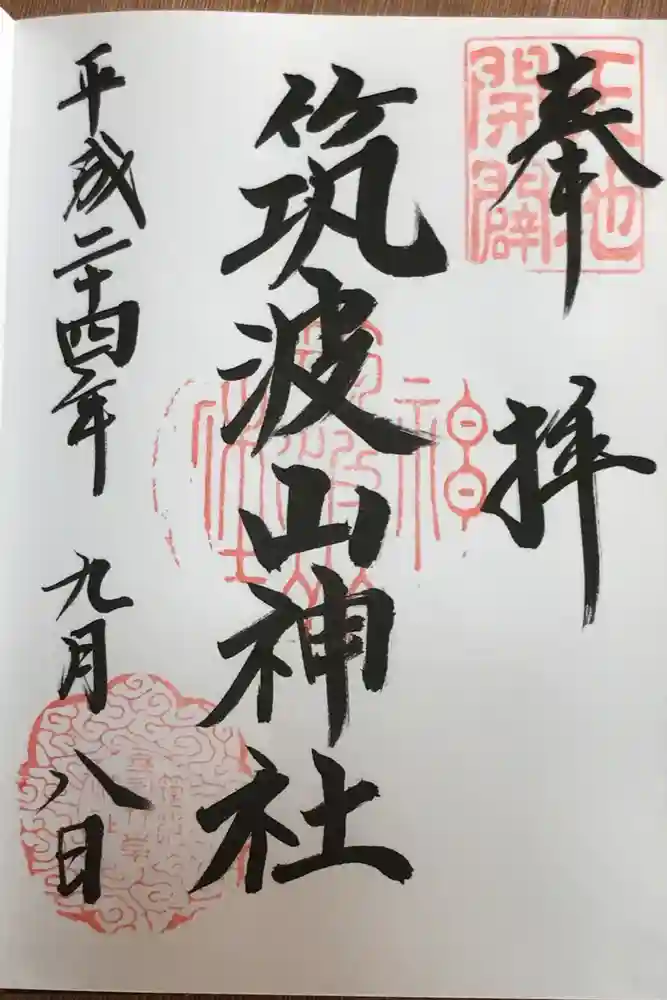 奉拝
天地
開闢
筑波山神社
平成二十四年 九月八日